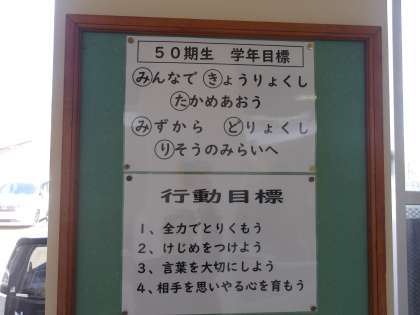 50期生　学年目標
みんなで　きょうりょくし
たかめあおう
みずから　どりょくし
りそうのみらいへ
行動目標
1、全力でとりくもう
2、けじめをつけよう
3、言葉を大切にしよう
4、相手を思いやる心を育もう